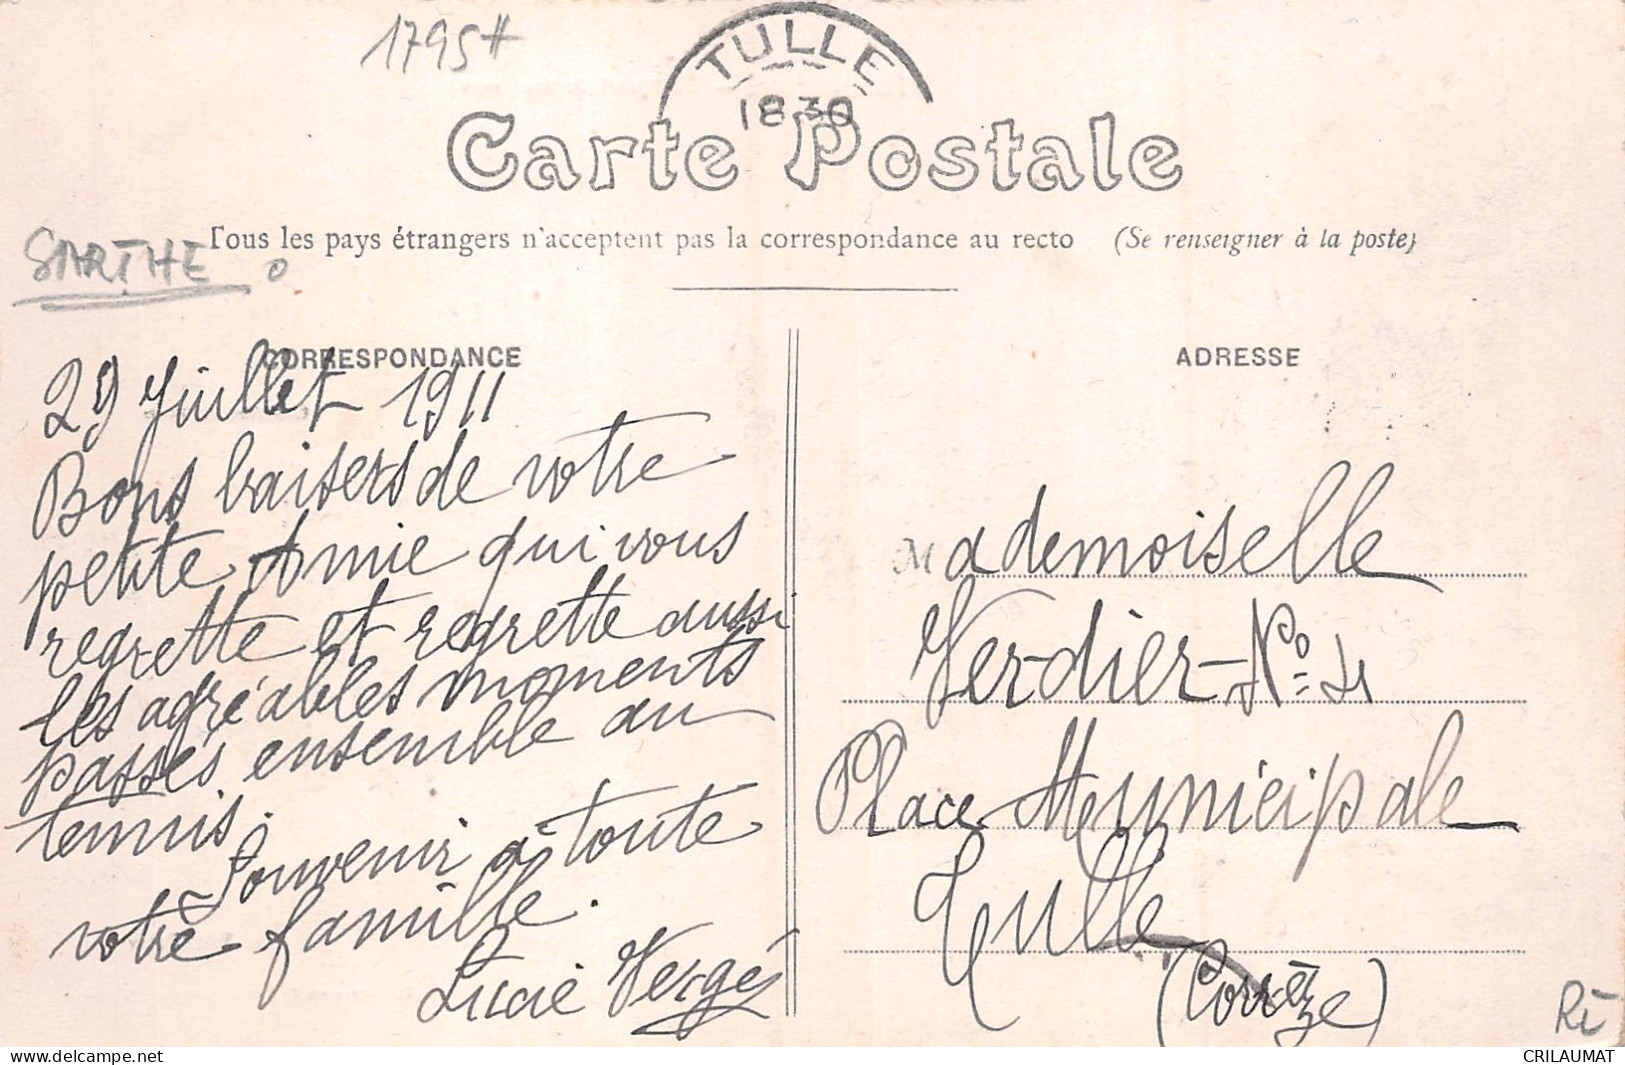 1795#
TULLE
1830
Carte Postale
SARTHE
Tous les pays étrangers n'acceptent pas la correspondance au recto (Se renseigner à la poste)
CORRESPONDANCE
29 Juillet 1911
Bons baisers de votre
petite Amie qui vous
regrette et regrette aussi
les agréables moments
passés ensemble au
tennis.
Souvenir à toute
votre famille.
Lucie Vergés
ADRESSE
Mademoiselle
Verdier - No = 4
Place Municipale
Tulle
(Corrèze)
CRILAUMAT